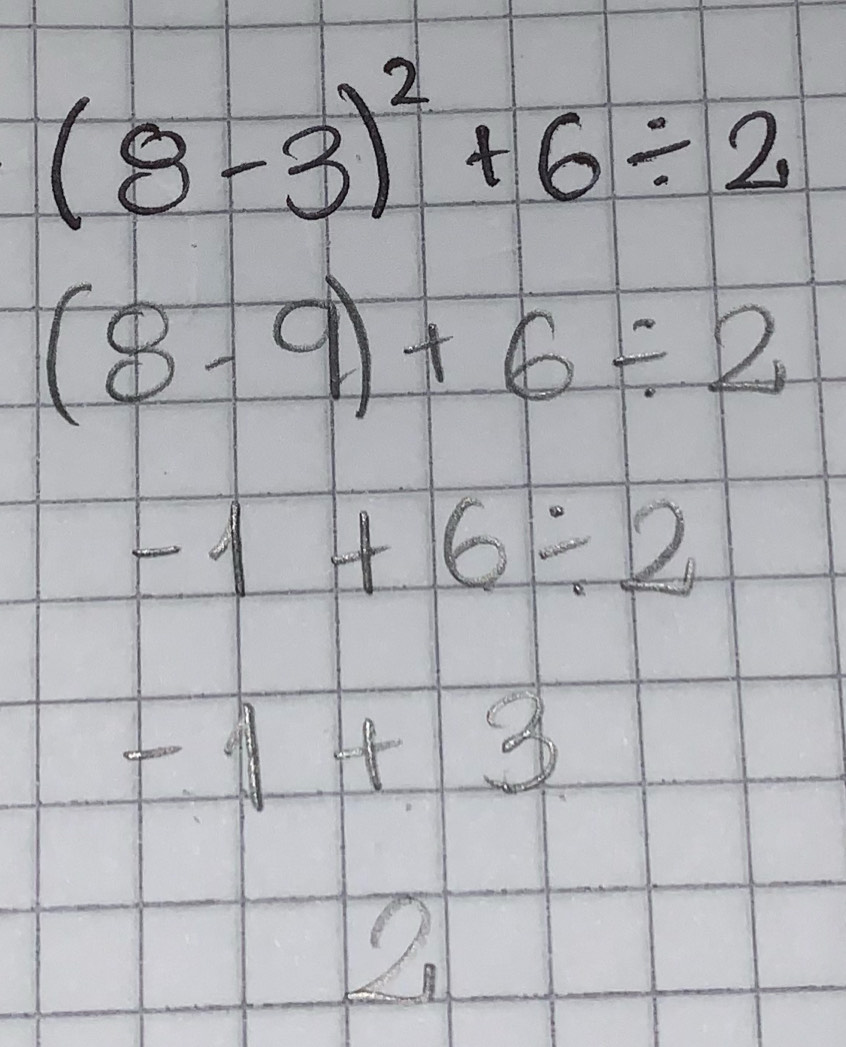 (8-3)² + 6 ÷ 2
(8-9) + 6 ÷ 2
-1 + 6 ÷ 2
-1 + 3
2